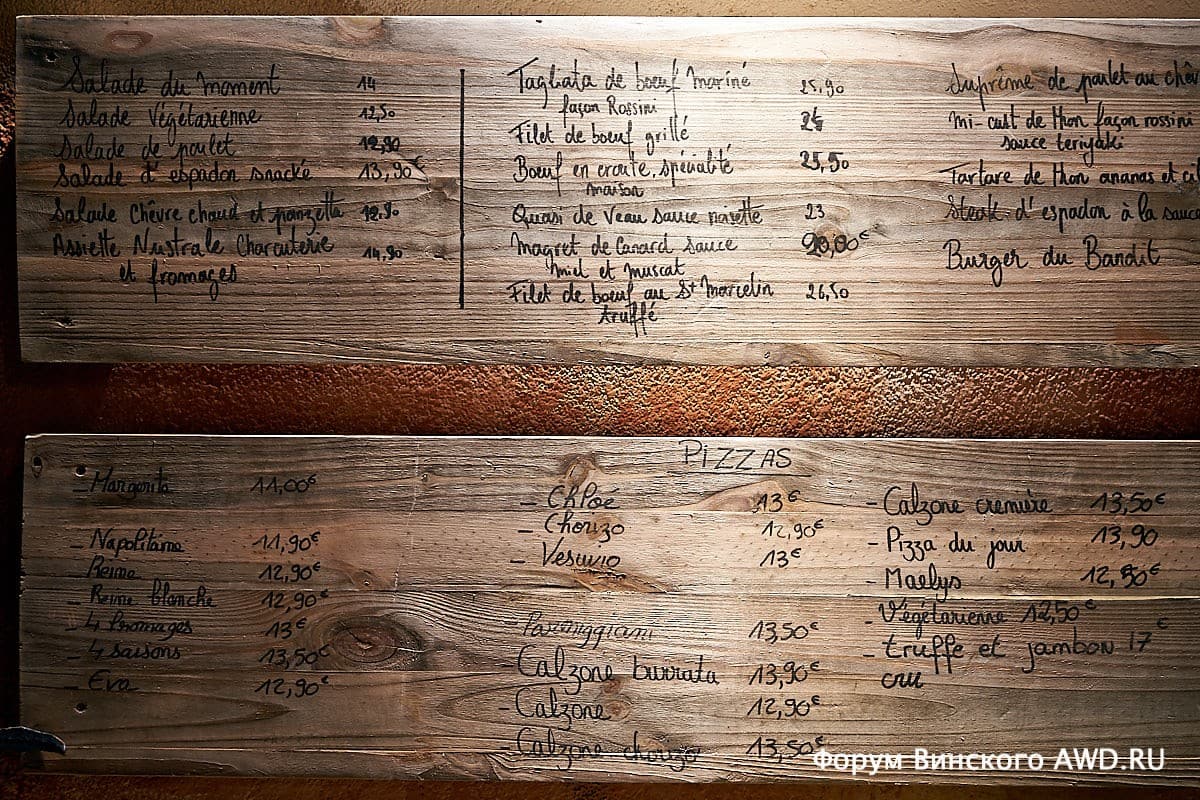 Salade du moment 14
Salade Végétarienne 12,50
Salade de poulet 12,90
Salade d'espadon snacké 13,90€
Salade Chèvre chaud et panzetta 12,90
Assiette Nustrale Charcuterie 14,90
et fromages
Tagliata de boeuf mariné 25,90
façon Rossini
Filet de boeuf grillé
Boeuf en croute, spécialité 25,50
maison
Quasi de Veau sauce noisette 23
Magret de Canard sauce
miel et muscat
Filet de boeuf au St Marcelin 26,50
truffé
Suprême de poulet au chèv
Mi-cuit de thon façon rossini
sauce teriyaki
Tartare de thon ananas et ci
Steak d'espadon à la sauce
Burger du Bandit
PIZZAS
- Margarita 11,00€
- Napolitaine 11,90€
- Reine 12,90€
- Reine blanche 12,90€
- 4 fromages 13€
- 4 saisons 13,50€
- Eva 12,90€
- Chloé 13€
- Chorizo 12,90€
- Vesuvio 13€
- Parmiggiani 13,50€
- Calzone burrata 13,90€
- Calzone 12,90€
- Calzone chorizo 13,50€
- Calzone cremière 13,50€
- Pizza du jour 13,90
- Maelys 12,90€
- Végétarienne 12,50€
- truffe et jambon 17€
cru
Форум Винского AWD.RU